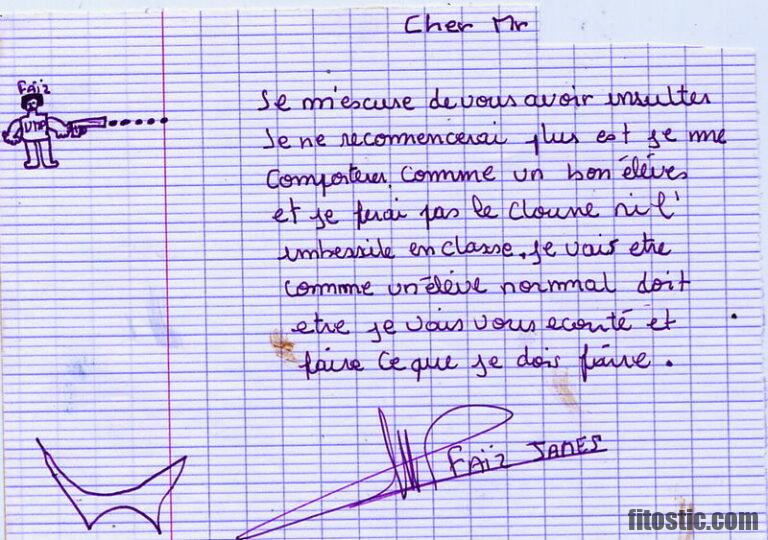 Cher Mr
Faïz
Je m'escuse de vous avoir insulter
Je ne recommencerai plus est je me
Comporterer. Comme un bon élèves
et je ferai pas le cloune ni l'
imbessile en classe. je vais etre
comme un élève normmal doit
etre je vais vous ecouté et
faire ce que je dois faire.
Faïz JAMES
fitostic.com